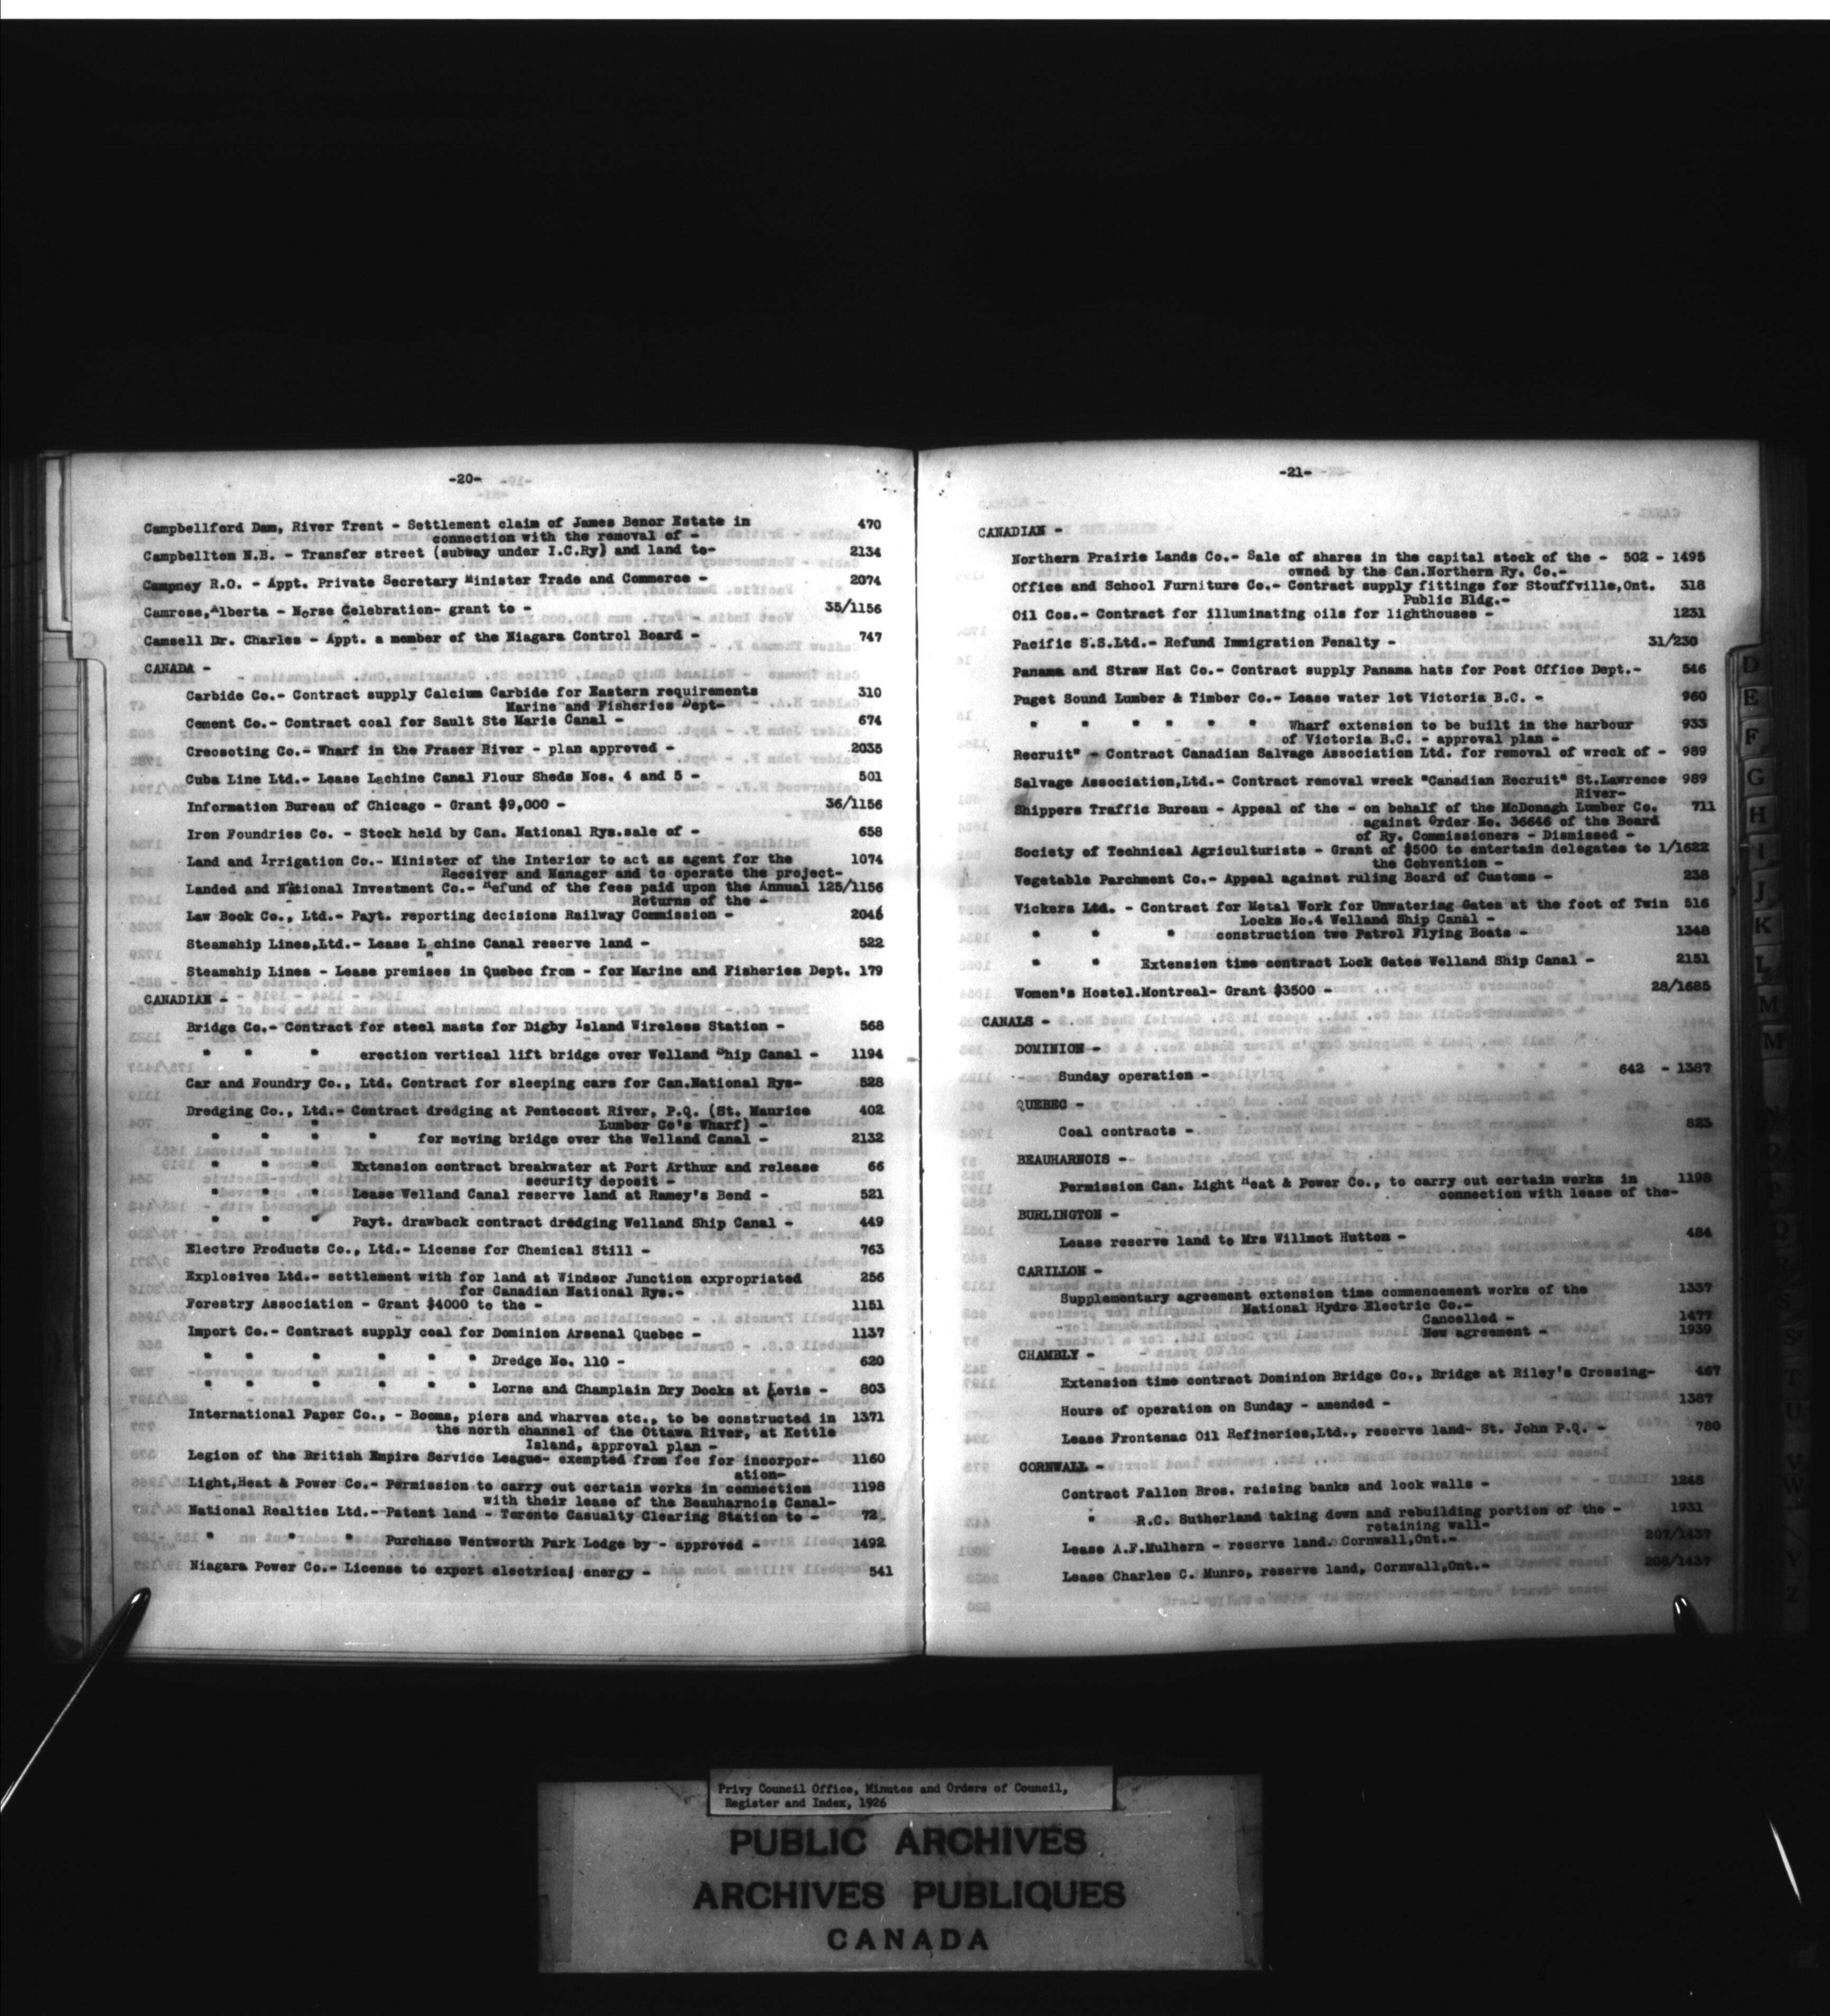 -20-
Campbellford Dam, River Trent - Settlement claim of James Benor Estate in 470
connection with the removal of -
Campbellton N.B. - Transfer street (subway under I.C.Ry) and land to- 2134
Campney R.O. - Appt. Private Secretary Minister Trade and Commerce - 2074
Camrose,Alberta - Norse Celebration- grant to - 35/1156
Camsell Dr. Charles - Appt. a member of the Niagara Control Board - 747
CANADA -
Carbide Co.- Contract supply Calcium Carbide for Eastern requirements 310
Marine and Fisheries Dept-
Cement Co.- Contract coal for Sault Ste Marie Canal - 674
Creosoting Co.- Wharf in the Fraser River - plan approved - 2035
Cuba Line Ltd.- Lease Lachine Canal Flour Sheds Nos. 4 and 5 - 501
Information Bureau of Chicago - Grant $9,000 - 36/1156
Iron Foundries Co. - Stock held by Can. National Rys.sale of - 658
Land and Irrigation Co.- Minister of the Interior to act as agent for the 1074
Receiver and Manager and to operate the project-
Landed and National Investment Co.- Refund of the fees paid upon the Annual 125/1156
Returns of the -
Law Book Co., Ltd.- Payt. reporting decisions Railway Commission - 2046
Steamship Lines,Ltd.- Lease Lachine Canal reserve land - 522
Steamship Lines - Lease premises in Quebec from - for Marine and Fisheries Dept. 179
CANADIAN -
Bridge Co.- Contract for steel masts for Digby Island Wireless Station - 568
" " " erection vertical lift bridge over Welland Ship Canal - 1194
Car and Foundry Co., Ltd. Contract for sleeping cars for Can.National Rys- 528
Dredging Co., Ltd.- Contract dredging at Pentecost River, P.Q. (St. Maurice 402
Lumber Co's Wharf) -
" " " " for moving bridge over the Welland Canal - 2132
" " " Extension contract breakwater at Port Arthur and release 66
security deposit -
" " " Lease Welland Canal reserve land at Ramey's Bend - 521
" " " Payt. drawback contract dredging Welland Ship Canal - 449
Electro Products Co., Ltd.- License for Chemical Still - 763
Explosives Ltd.- settlement with for land at Windsor Junction expropriated 256
for Canadian National Rys.-
Forestry Association - Grant $4000 to the - 1151
Import Co.- Contract supply coal for Dominion Arsenal Quebec - 1137
" " " " " " Dredge No. 110 - 620
" " " " " " Lorne and Champlain Dry Docks at Levis - 803
International Paper Co., - Booms, piers and wharves etc., to be constructed in 1371
the north channel of the Ottawa River, at Kettle
Island, approval plan -
Legion of the British Empire Service League- exempted from fee for incorpor- 1160
ation-
Light,Heat & Power Co.- Permission to carry out certain works in connection 1198
with their lease of the Beauharnois Canal-
National Realties Ltd.--Patent land - Toronto Casualty Clearing Station to - 72
" " " Purchase Wentworth Park Lodge by - approved - 1492
Niagara Power Co.- License to export electrical energy - 541
-21-
CANADIAN -
Northern Prairie Lands Co.- Sale of shares in the capital stock of the - 502 - 1495
owned by the Can.Northern Ry. Co.-
Office and School Furniture Co.- Contract supply fittings for Stouffville,Ont. 318
Public Bldg.-
Oil Cos.- Contract for illuminating oils for lighthouses - 1231
Pacific S.S.Ltd.- Refund Immigration Penalty - 31/230
Panama and Straw Hat Co.- Contract supply Panama hats for Post Office Dept.- 546
Puget Sound Lumber & Timber Co.- Lease water lot Victoria B.C. - 960
" " " " " " Wharf extension to be built in the harbour 933
of Victoria B.C. - approval plan -
Recruit" - Contract Canadian Salvage Association Ltd. for removal of wreck of - 989
Salvage Association,Ltd.- Contract removal wreck "Canadian Recruit" St.Lawrence 989
River-
Shippers Traffic Bureau - Appeal of the - on behalf of the McDonagh Lumber Co. 711
against Order No. 36646 of the Board
of Ry. Commissioners - Dismissed -
Society of Technical Agriculturists - Grant of $500 to entertain delegates to 1/1622
the Convention -
Vegetable Parchment Co.- Appeal against ruling Board of Customs - 238
Vickers Ltd. - Contract for Metal Work for Unwatering Gates at the foot of Twin 516
Locks No.4 Welland Ship Canal -
" " " construction two Patrol Flying Boats - 1348
" " Extension time contract Lock Gates Welland Ship Canal - 2151
Women's Hostel.Montreal- Grant $3500 - 28/1685
CANALS -
DOMINION -
Sunday operation - 642 - 1387
QUEBEC -
Coal contracts - 823
BEAUHARNOIS -
Permission Can. Light Heat & Power Co., to carry out certain works in 1198
connection with lease of the-
BURLINGTON -
Lease reserve land to Mrs Willmot Hutton - 484
CARILLON -
Supplementary agreement extension time commencement works of the 1337
National Hydro Electric Co.-
Cancelled - 1477
New agreement - 1939
CHAMBLY -
Extension time contract Dominion Bridge Co., Bridge at Riley's Crossing- 467
Hours of operation on Sunday - amended - 1387
Lease Frontenac Oil Refineries,Ltd., reserve land- St. John P.Q. - 780
CORNWALL -
Contract Fallon Bros. raising banks and lock walls - 1248
" R.C. Sutherland taking down and rebuilding portion of the - 1931
retaining wall-
Lease A.F.Mulhern - reserve land. Cornwall,Ont.- 207/1437
Lease Charles C. Munro, reserve land, Cornwall,Ont.- 208/1437
D
E
F
G
H
I
J
K
L
M
M
Privy Council Office, Minutes and Orders of Council,
Register and Index, 1926
PUBLIC ARCHIVES
ARCHIVES PUBLIQUES
CANADA